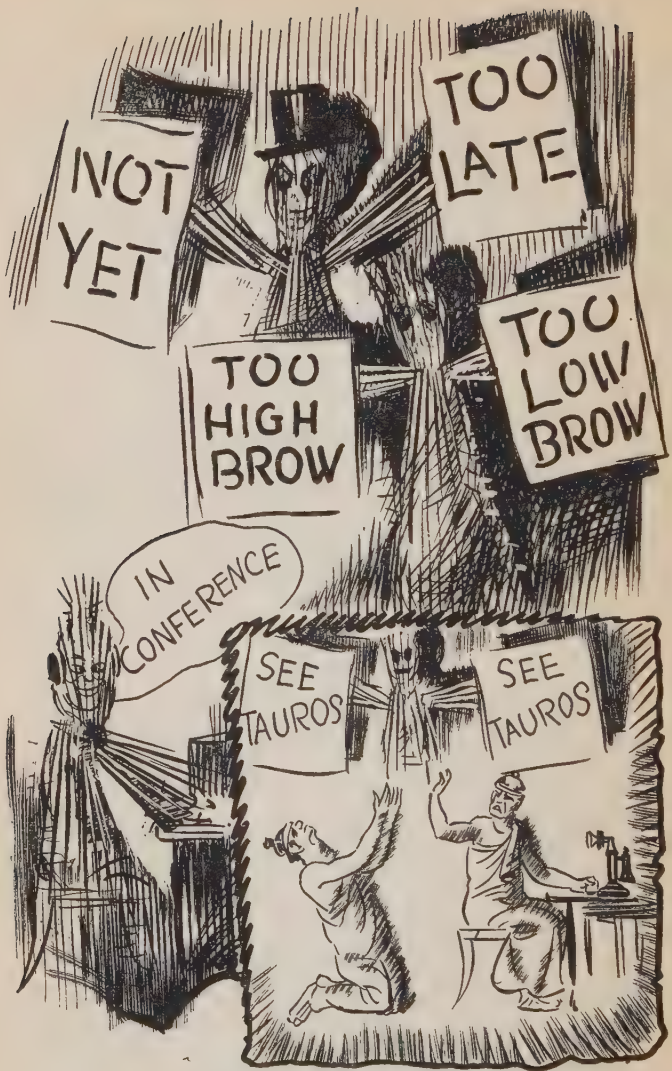 NOT
YET
TOO
LATE
TOO
HIGH
BROW
TOO
LOW
BROW
IN
CONFERENCE
SEE
TAUROS
SEE
TAUROS